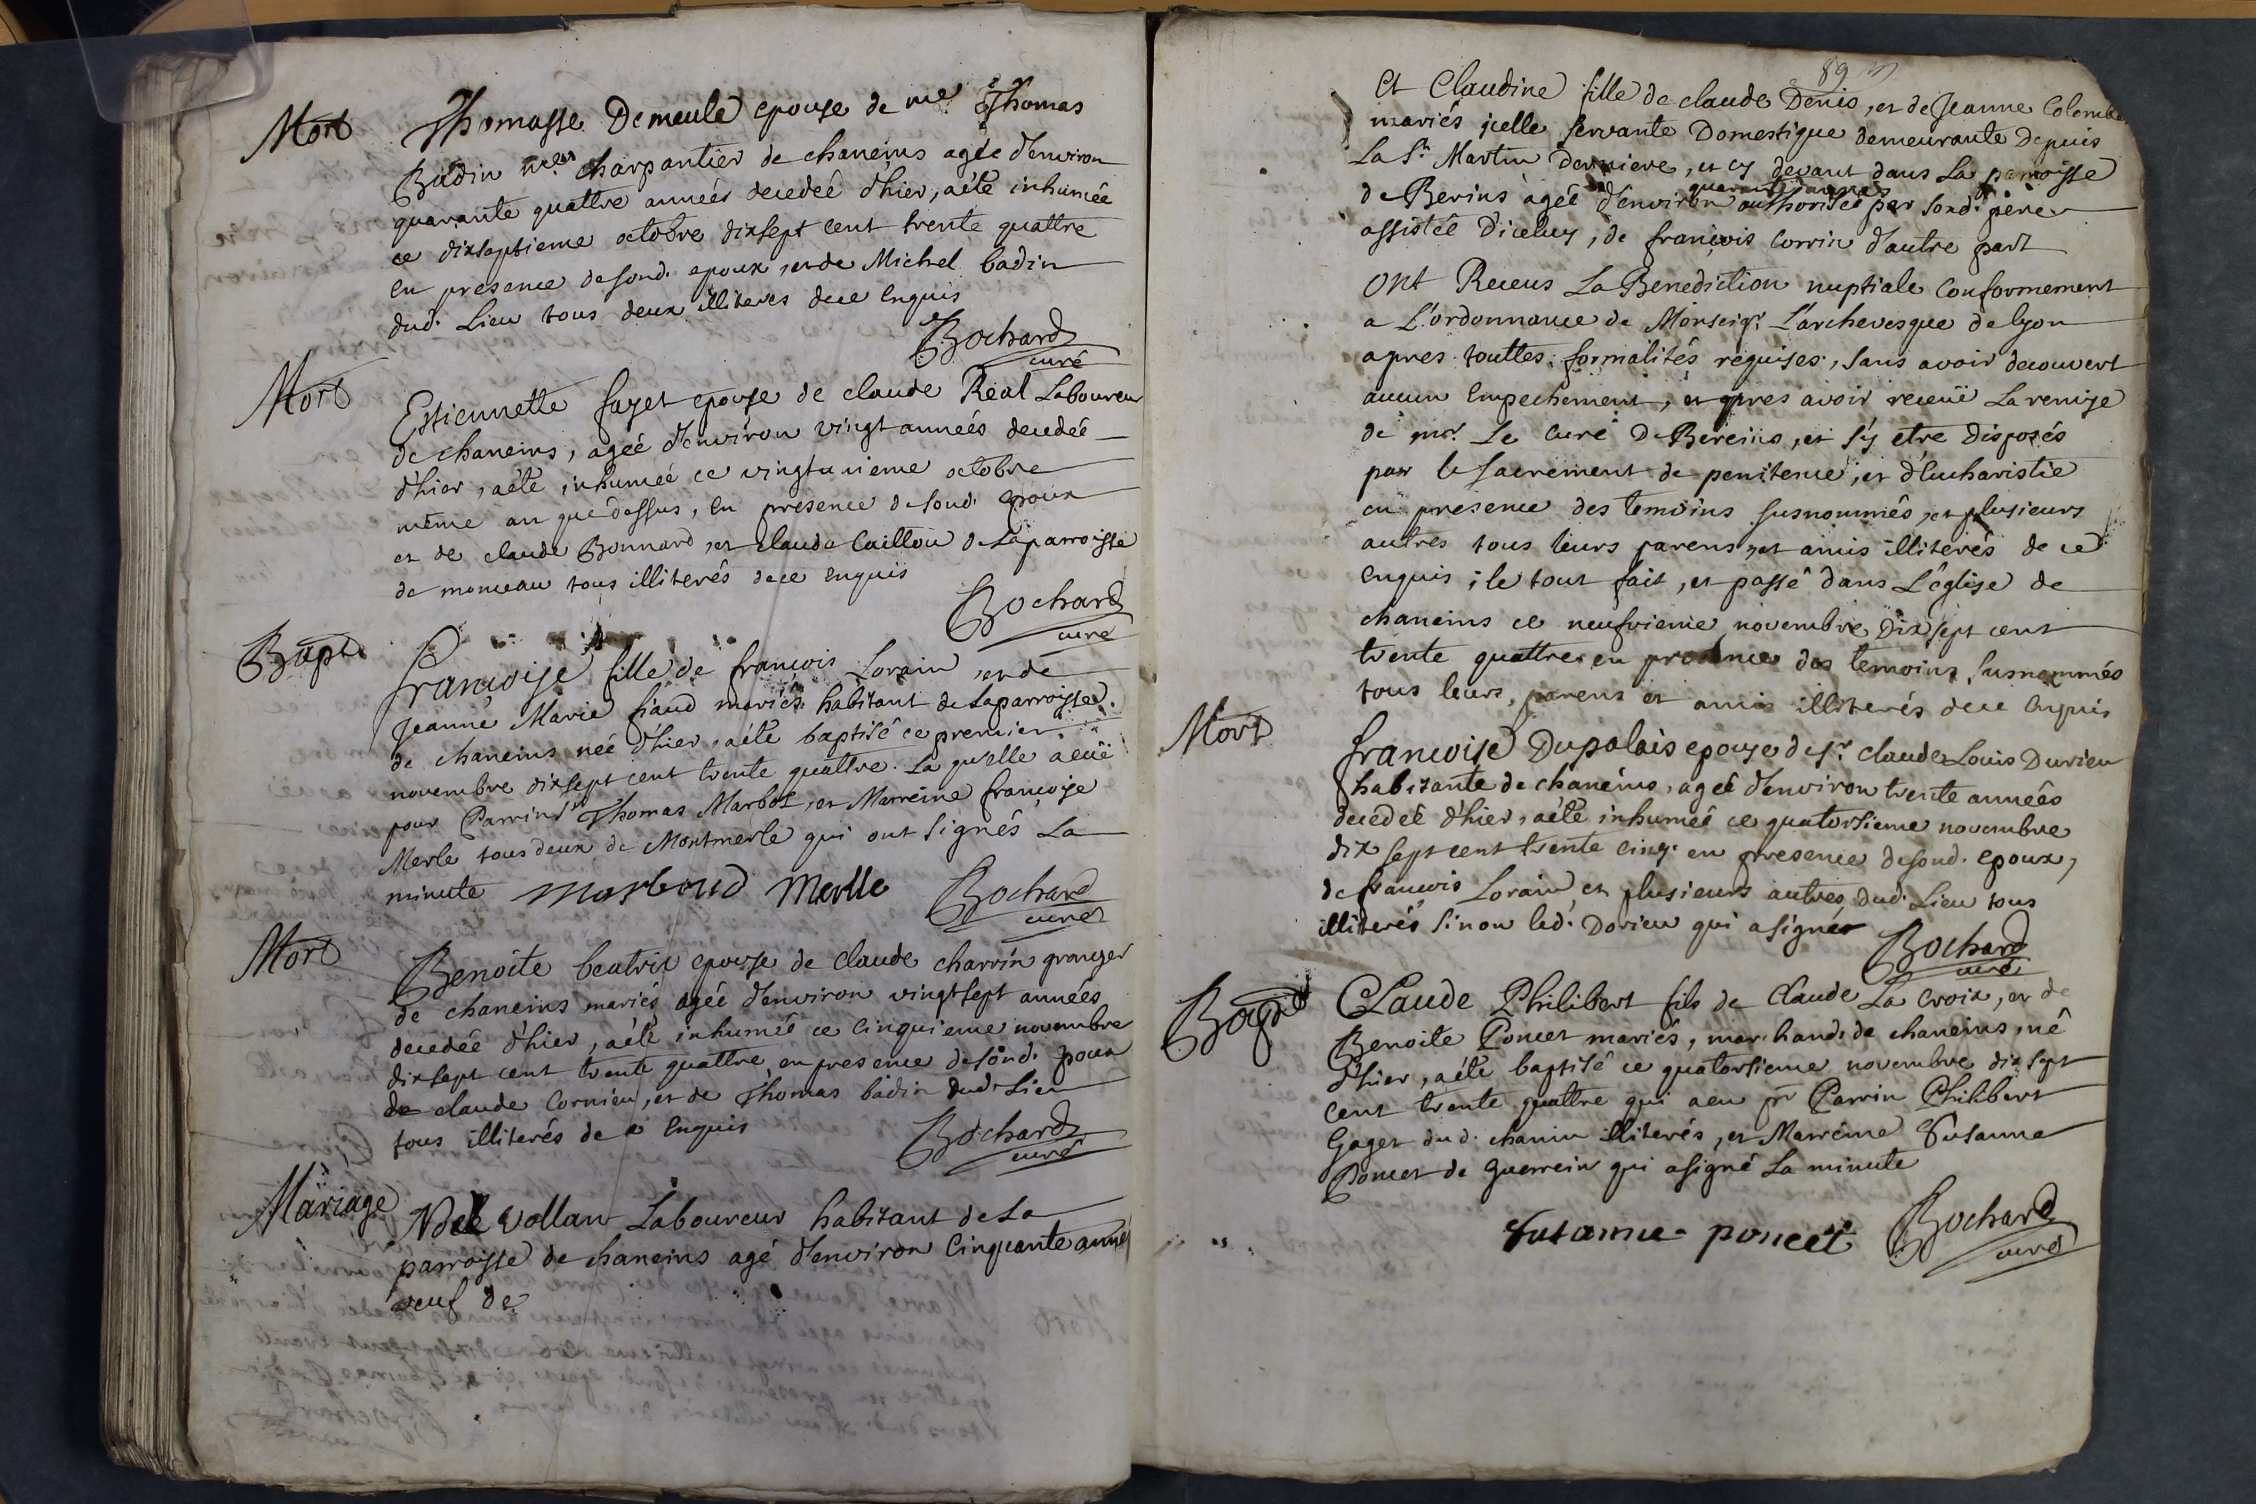 Mort
Thomasse Demeule epouse de me Thomas
Badin charpantier de chaneins agée d'environ
quarante quattre années decedeé d'hier, aété inhumée
ce dixseptieme octobre dixsept cent trente quattre
en presence de sond. epoux, et de Michel badin
dud. Lieu tous deux illiteres dece Enquis
Bochard
curé
Mort
Estiennette fayet epouse de claude Réal Laboureur
de chaneins, agée d'environ vingt années decedée
d'hier, aété inhumée ce vingtunieme octobre
même an que dessus, En presence de sond. epoux
et de claude Bonnard, et claude Caillou de Laparroisse
de monceau tous illiterés dece Enquis
Bochard
curé
Bapt.
françoise fille de françois Lorain, et de
Jeanne Marie fiaud mariés habitant de Laparroisse
de chaneins née d'hier, aété baptisé ce premier
novembre dixsept cent trente quattre. La quelle aeuë
pour Parrins Thomas Marbot, et Marreine françoise
Merle tous deux de Montmerle qui ont signés La
minute marboud merlle
Bochard
curé
Mort
Benoite beatrix epouse de claude charrin granger
de chaneins mariés agée d'environ vingtsept années
decedée d'hier, aété inhumée ce Cinquieme novembre
dixsept cent trente quattre en presence de sond. poux
de claude Cornieu, et de Thomas badin dud. Lieu
tous illiterés de ce Enquis
Bochard
curé
Mariage
Noel Vollan Laboureur habitant de La
parroisse de chaneins agé d'environ Cinquante anné
veuf de
89
Et Claudine fille de claude Denis, et de Jeanne Colombe
mariés icelle servante Domestique demeurante depuis
La St. Martin derniere, et cy devant dans La parroisse
quarante années
de Berins agée d'environ authorisée par sond. père
assistée d'iceluy, de françois Corrin d'autre part
ont Receus La Benediction nuptiale Conformement
a L'ordonnance de Monseigr. L'archevesque de lyon
apres touttes formalités requises, sans avoir decouvert
aucun Empechement, et apres avoir receuë La remise
de mr. Le Curé De Bereins, et s'y etre disposés
par le sacrement de penitence, et d'Eucharistie
en presence des temoins susnommés, et plusieurs
autres tous leurs parens, et amis illiterés de ce
Enquis; le tout fait, et passé dans L'église de
chaneins ce neufvieme novembre dix sept cent
trente quattre en presence des temoins susnommés
tous leurs parens et amis illiterés dece Enquis
Mort
francoise Dupalais epouse de sr. claude Louis Durieu
habitante de chaneins, agée d'environ trente années
decedéé d'hier, aété inhumée ce quatorsieme novembre
dix sept cent trente cinq. en presence de sond. epoux,
de françois Lorain et plusieurs autres dud. Lieu tous
illiterés sinon led. Dorieu qui asigné
Bochard
curé
Bapt
Claude Philibert fils de Claude La Croix, et de
Benoite Poncet mariés, marchands de chaneins, né
d'hier, aété baptisé ce quatorsieme novembre dix sept
cent trente quattre qui aeu pr Parrin Philibert
Gaget dud. chanin illiterés, et Marreine Susanne
Poncet de Guerrein qui asigné La minute
susanne poncet
Bochard
curé